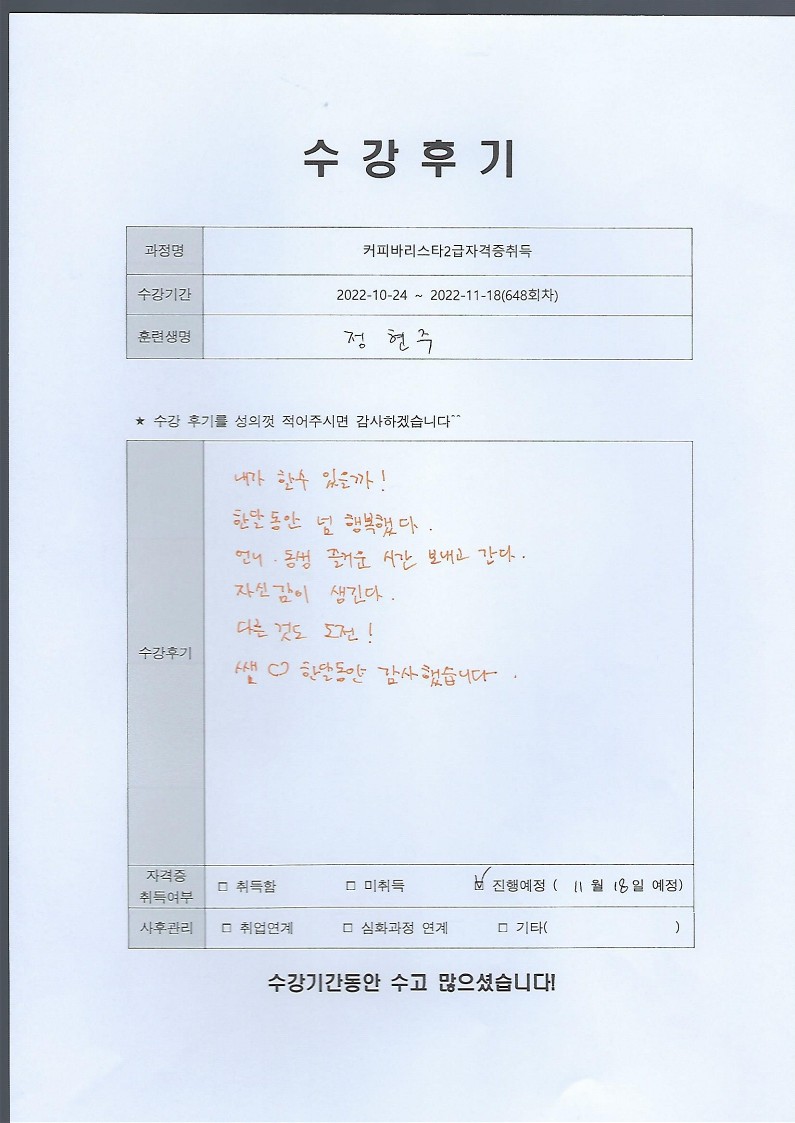 수강후기
과정명 커피바리스타2급자격증취득
수강기간 2022-10-24 ~ 2022-11-18(648회차)
훈련생명 정 현 주
★ 수강 후기를 성의껏 적어주시면 감사하겠습니다^^
수강후기
내가 할수 있을까!
한달동안 넘 행복했다.
언니. 동생 즐거운 시간 보내고 간다.
자신감이 생긴다.
다른 것도 도전!
쌤 ♡ 한달동안 감사했습니다.
자격증 취득여부 □ 취득함 □ 미취득 ☑ 진행예정 ( 11 월 18일 예정)
사후관리 □ 취업연계 □ 심화과정 연계 □ 기타( )
수강기간동안 수고 많으셨습니다!